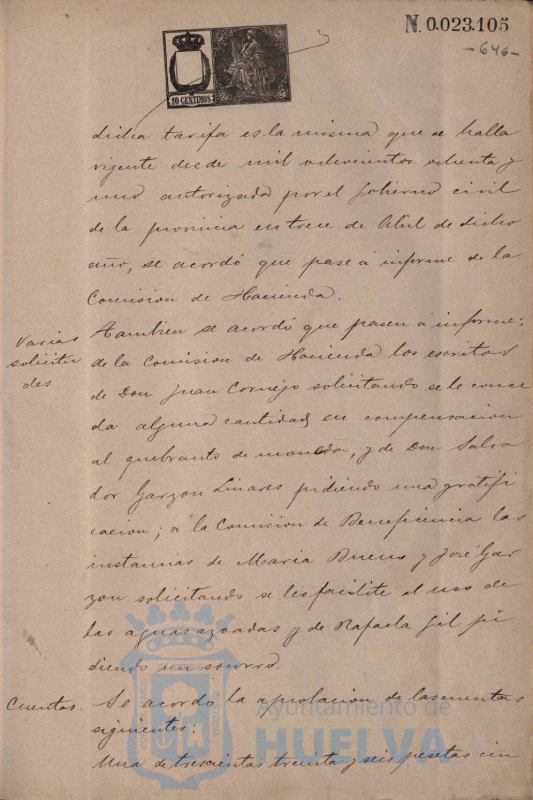 N. 0.023.105
-646-
10 CENTIMOS
dicha tarifa es la misma que se halla
vigente desde mil ochocientos ochenta y
uno autorizada por el Gobierno civil
de la provincia en trece de Abril de dicho
año, se acordó que pase á informe de la
Comision de Hacienda.
Varias
solicitu
des
Tambien se acordó que pasen á informe:
de la Comision de Hacienda los escritos
de Don Juan Cornejo solicitando se le conce
da alguna cantidad en compensacion
al quebranto de moneda, y de Don Salva
dor Garzon Linares pidiendo una gratifi
cacion; á la Comision de Beneficencia las
instancias de Maria Bueno y José Gar
zon solicitando se les facilite el uso de
las aguas azoadas y de Rafaela Gil pi
diendo un socorro.
Cuentas.
Se acordó la aprobacion de las cuentas
siguientes:
Una de trescientas treinta y seis pesetas cin
Ayuntamiento de
HUELVA